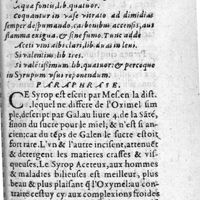 Aquæ fontis, lib. quatuor.
Coquantur in vase vitrato ad dimidias
semper despumando, carbonibus accensis, aut
flamma exigua, & sine fumo. Tunc adde
Aceti vini albi clari, lib. duas in leui.
Si valentius, lib. tres.
Si validissimum lib. quatuor: & percoque
in Syrupum vsui reponendum.
PARAPHRASE.
CE Syrop est escrit par Mesen la dist.
lequel ne differe de l'Oximel sim
ple, descript par Gal. au liure 4. de la Sãté,
sinon du sucre pour le miel, & n'est si an-
cien; car du tẽps de Galen le sucre estoit
fort rare. L'vn & l'autre incisent, attenuẽt
& detergent les matieres crasses & vis-
queuses. Le Syrop Aceteux, aux hommes
& maladies bilieuses est meilleur, plus
beau & plus plaisant q̃ l'Oxymel: au con-
traire cestuy cy aux complexions froides